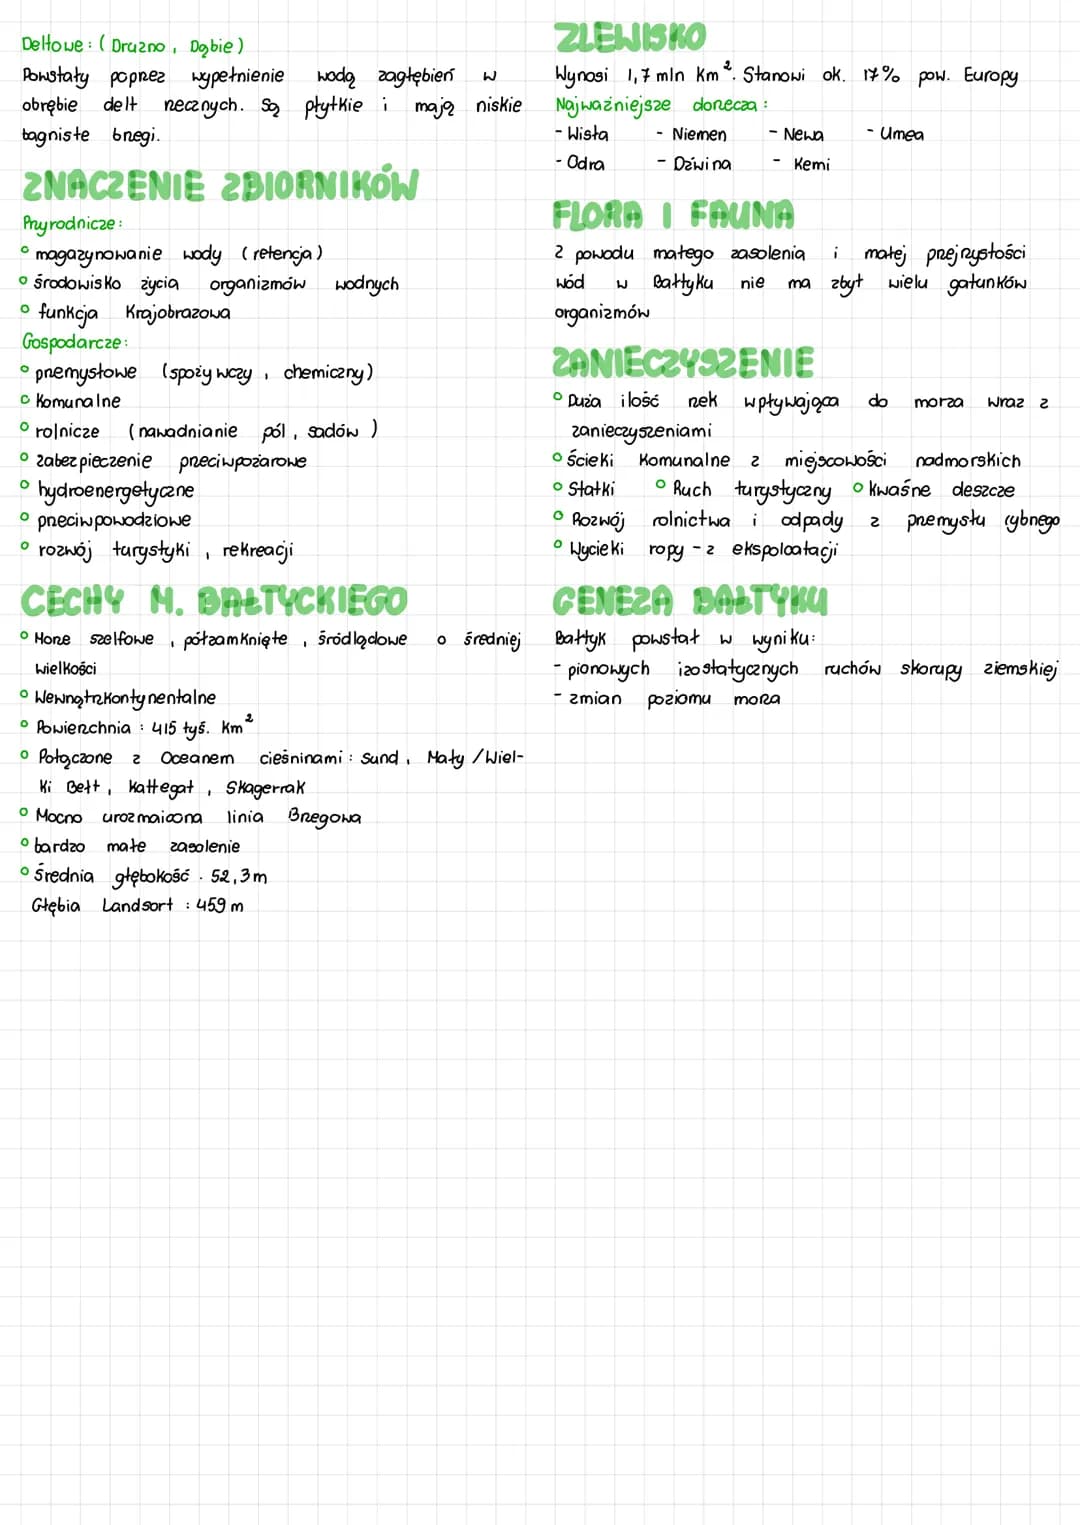 Deltowe: (Druzno, Dąbie)
Powstały poprzez wypełnienie wodą zagłębień w
obrębie delt rzecznych. Są płytkie i mają niskie
bagniste brzegi.
ZNACZENIE ZBIORNIKÓW
Przyrodnicze:
° magazynowanie wody (retencja)
° środowisko życia organizmów wodnych
° funkcja krajobrazowa
Gospodarcze:
° przemysłowe (spożywczy, chemiczny)
° komunalne
° rolnicze (nawadnianie pól, sadów)
° zabezpieczenie przeciwpożarowe
° hydroenergetyczne
° przeciwpowodziowe
° rozwój turystyki, rekreacji
CECHY M. BAŁTYCKIEGO
° Morze szelfowe, półzamknięte, śródlądowe o średniej
wielkości
° Wewnątrzkontynentalne
° Powierzchnia: 415 tyś. km²
° Połączone z Oceanem cieśninami: Sund, Mały/Wiel-
ki Bełt, Kattegat, Skagerrak
° Mocno urozmaicona linia Brzegowa
° bardzo małe zasolenie
° Średnia głębokość. 52,3m
Głębia Landsort: 459 m
ZLEWISKO
Wynosi 1,7 mln km². Stanowi ok. 17% pow. Europy
Najważniejsze dorzecza:
- Wisła - Niemen - Newa - Umea
- Odra - Dźwina - Kemi
FLORA I FAUNA
Z powodu małego zasolenia i małej przejrzystości
wód w Bałtyku nie ma zbyt wielu gatunków
organizmów
ZANIECZYSZENIE
° Duża ilość rzek wpływająca do morza wraz z
zanieczyszeniami
° Ścieki komunalne z miejscowości nadmorskich
° Statki ° Ruch turystyczny ° Kwaśne deszcze
° Rozwój rolnictwa i odpady z przemysłu rybnego
° Wycieki ropy - z ekspoloatacji
GENEZA BAŁTYKU
Bałtyk powstał w wyniku:
- pionowych izostatycznych ruchów skorupy ziemskiej
- zmian poziomu morza